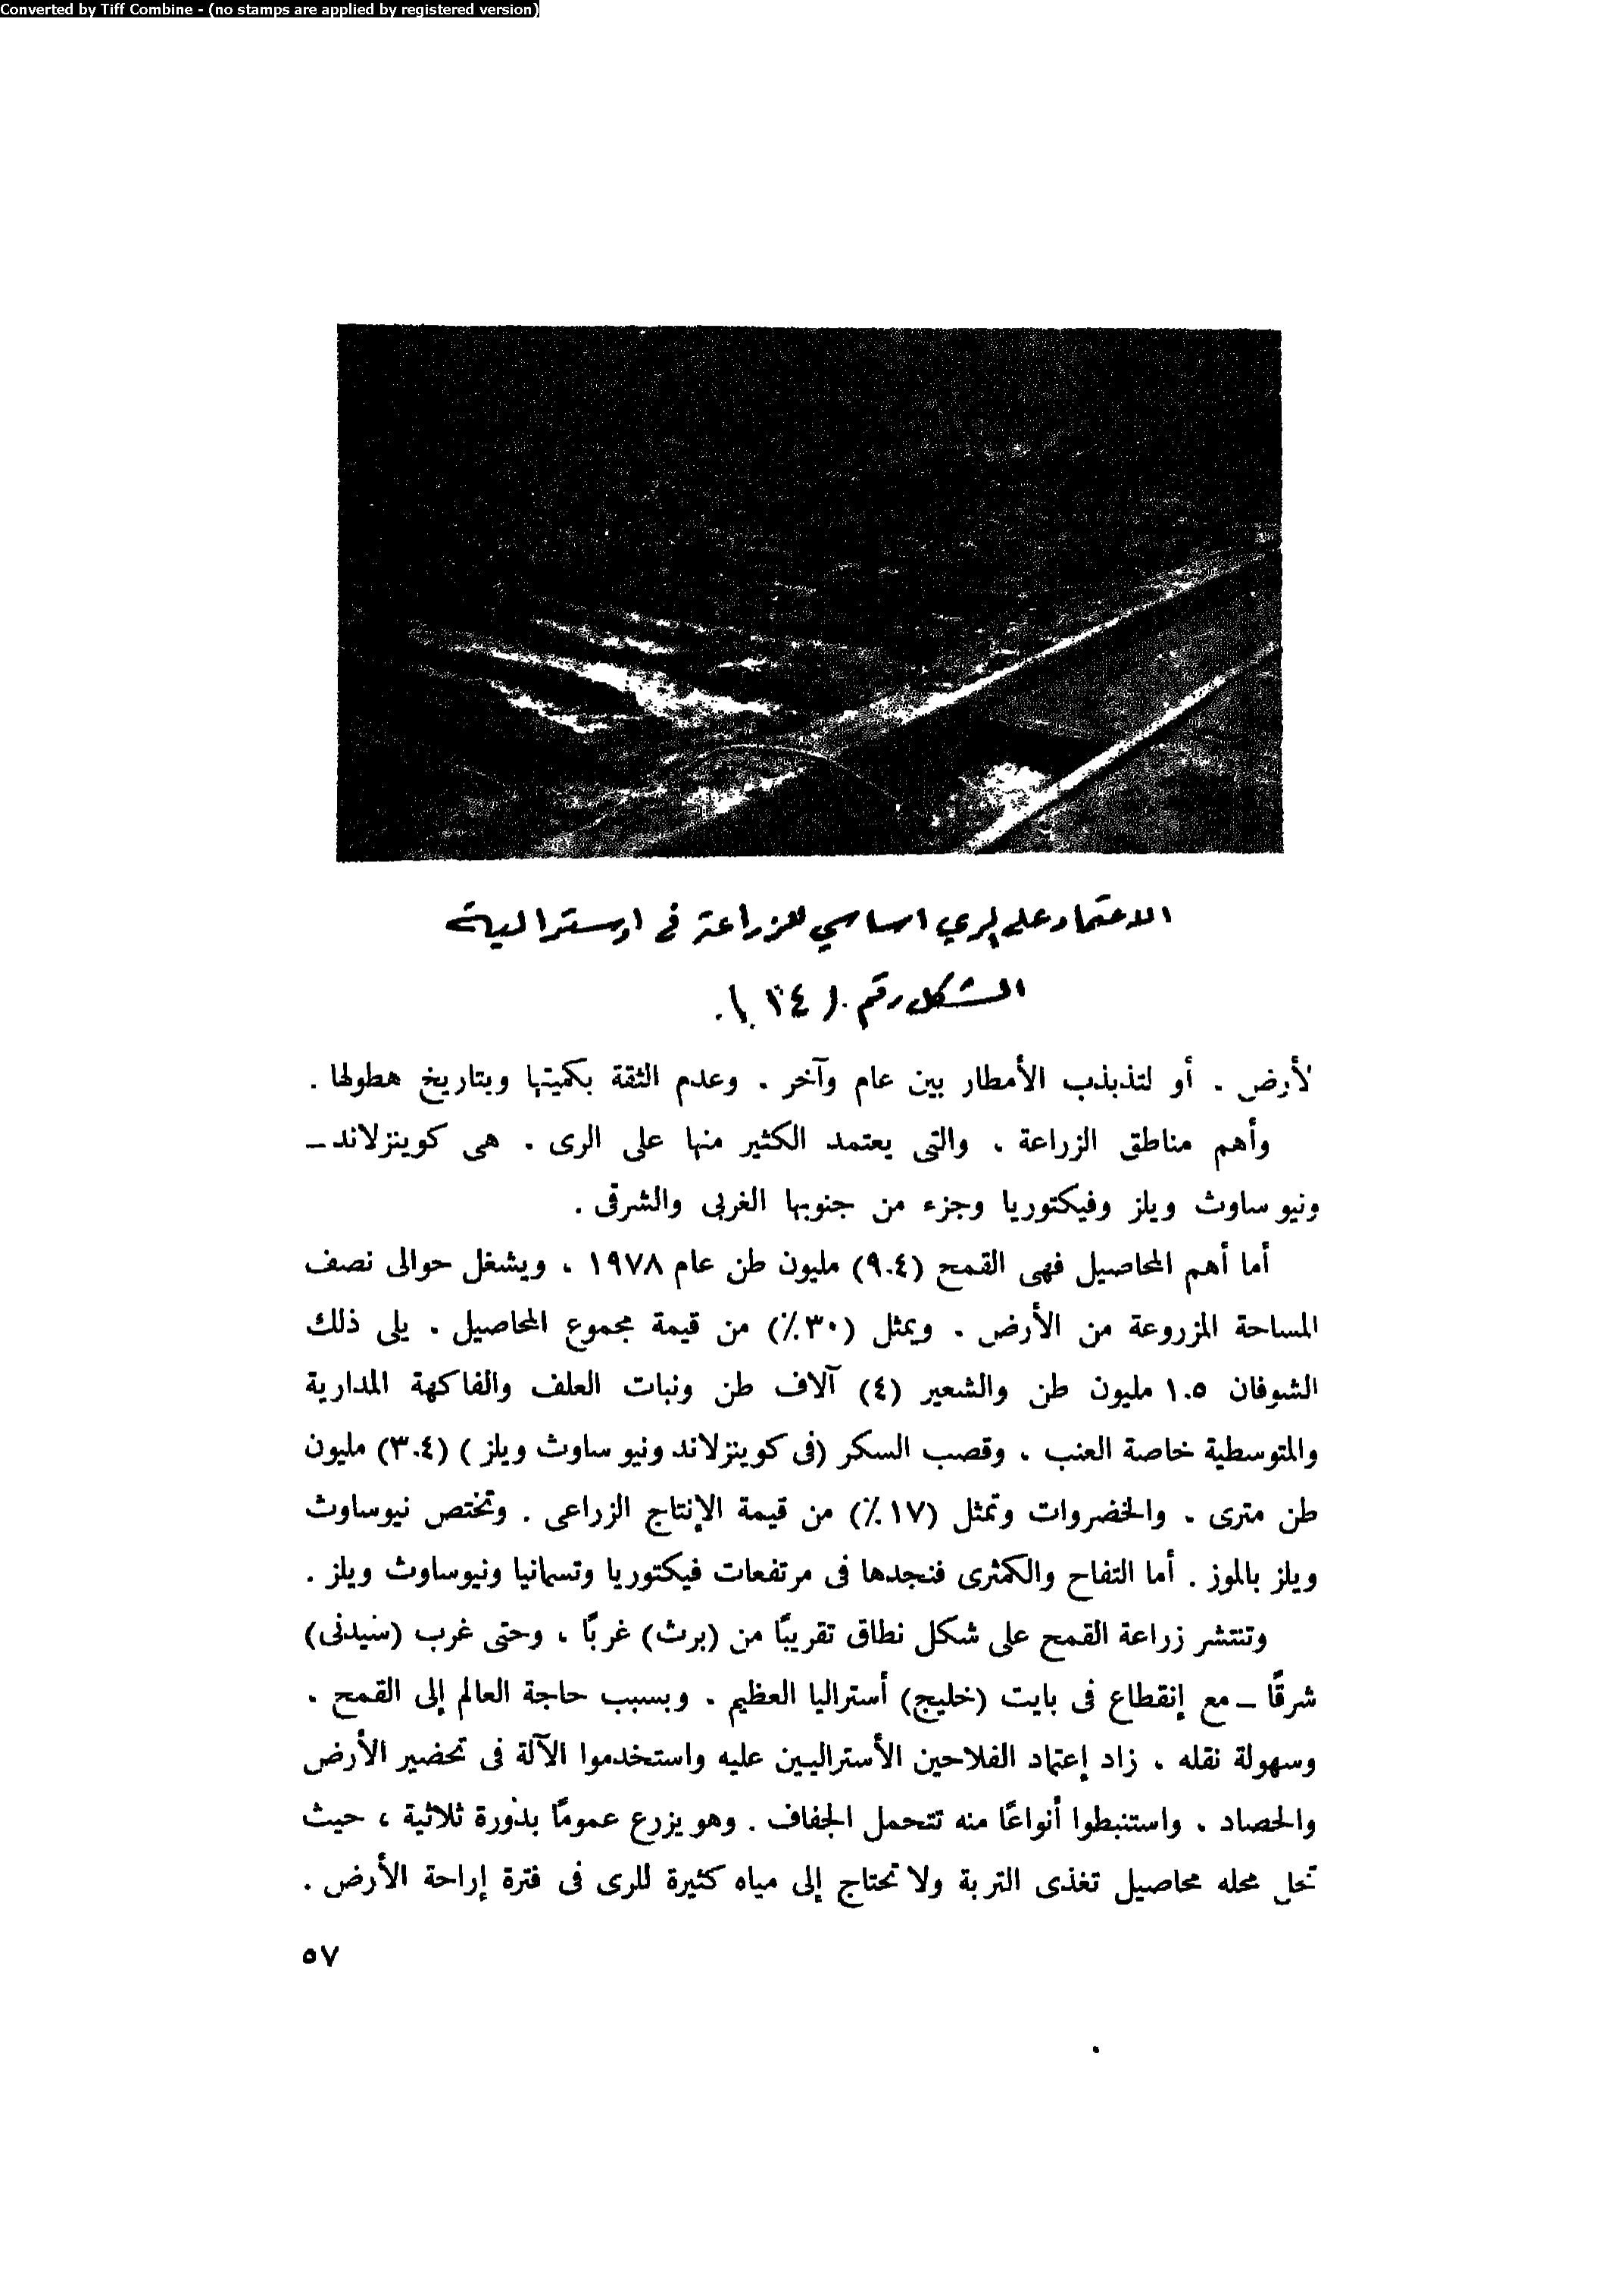 Converted by Tiff Combine - (no stamps are applied by registered version)
الاعتماد على الري اساسي للزراعة في اوسترالية
الشكل رقم (٢٤).
لأرض . أو لتذبذب الأمطار بين عام وآخر . وعدم الثقة بكميتها وبتاريخ هطولها .
وأهم مناطق الزراعة ، والتى يعتمد الكثير منها على الرى . هى كوينزلاند –
ونيو ساوث ويلز وفيكتوريا وجزء من جنوبها الغربى والشرقى .
أما أهم المحاصيل فهى القمح (٩.٤) مليون طن عام ١٩٧٨ ، ويشغل حوالى نصف
المساحة المزروعة من الأرض . ويمثل (٣٠٪) من قيمة مجموع المحاصيل . يلى ذلك
الشوفان ١.٥ مليون طن والشعير (٤) آلاف طن ونبات العلف والفاكهة المدارية
والمتوسطية خاصة العنب ، وقصب السكر (فى كوينزلاند ونيو ساوث ويلز ) (٣.٤) مليون
طن مترى . والخضروات وتمثل (١٧٪) من قيمة الإنتاج الزراعى . وتختص نيوساوث
ويلز بالموز . أما التفاح والكمثرى فنجدها فى مرتفعات فيكتوريا وتسمانيا ونيوساوث ويلز .
وتنتشر زراعة القمح على شكل نطاق تقريبًا من (برث) غربًا ، وحتى غرب (سنيدنى)
شرقًا – مع إنقطاع فى بايت (خليج) أستراليا العظيم . وبسبب حاجة العالم إلى القمح .
وسهولة نقله ، زاد إعتماد الفلاحين الأستراليين عليه واستخدموا الآلة فى تحضير الأرض
والحصاد . واستنبطوا أنواعًا منه تتحمل الجفاف . وهو يزرع عمومًا بدورة ثلاثية ، حيث
تحل محله محاصيل تغذى التربة ولا تحتاج إلى مياه كثيرة للرى فى فترة إراحة الأرض .
٥٧